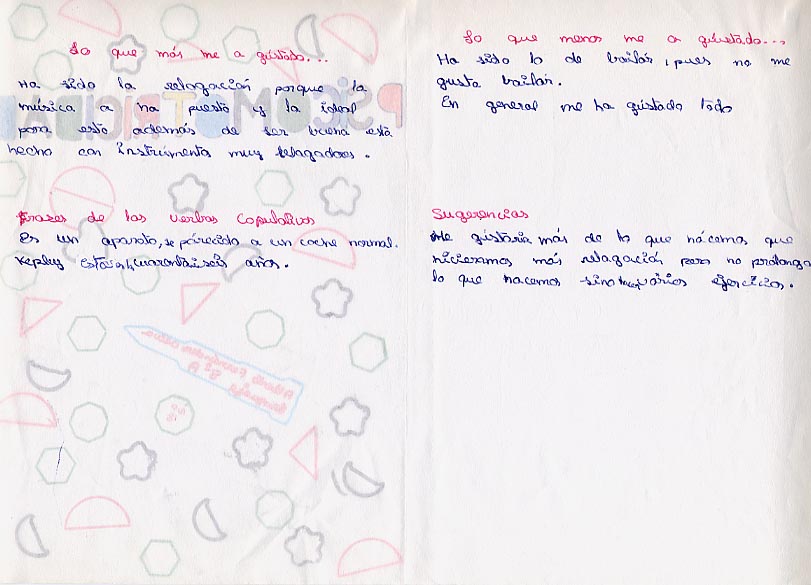 Lo que más me a gústado...
Ha sido la relagación porque la
música a na puesto y la ideal
para esto además de ser buena está
hecho con instrumento muy relagadores.
Frazes de las verbos copulativos
Es un aparato, se parecido a un coche normal.
Kepley cuarentaiseis años.
Lo que menos me a gústado...
Ha sido lo de bailar, pues no me
gusta bailar.
En general me ha gústado todo
Sugerencias
Me gústaria más de lo que hácemos que
hicieramos más relagación pero no prolonga
lo que hacemos sino vários ejercicios.
PSICOMOTRICIDAD